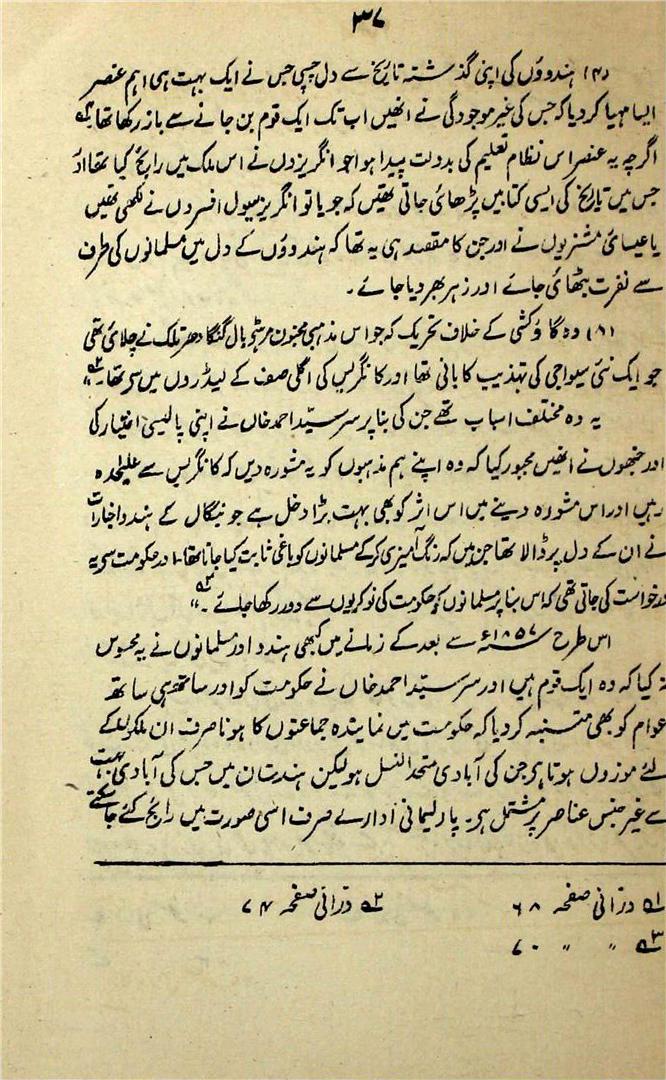 ۳۷
(۴) ہندوؤں کی اپنی گذشتہ تاریخ سے دل چسپی جس نے ایک بہت ہی اہم عنصر
ایسا مہیا کر دیا کہ جس کی غیر موجودگی نے انھیں اب تک ایک قوم بن جانے سے باز رکھا تھا۔
اگرچہ یہ عنصر اس نظام تعلیم کی بدولت پیدا ہوا جو انگریزوں نے اس ملک میں رائج کیا تھا اور
جس میں تاریخ کی ایسی کتابیں پڑھائی جاتی تھیں کہ جو یا تو انگریز سیول افسروں نے لکھی تھیں
یا عیسائی مشنریوں نے اور جن کا مقصد ہی یہ تھا کہ ہندوؤں کے دل میں مسلمانوں کی طرف
سے نفرت بٹھائی جائے اور زہر بھر دیا جائے۔
(۸) وہ گاؤ کشی کے خلاف تحریک کہ جو اس مذہبی مجنون مرہٹی بال گنگا دھر تلک نے چلائی تھی
جو ایک نئی سیواجی کی تہذیب کا بانی تھا اور کانگریس کی اگلی صف کے لیڈروں میں سے تھا۔"
یہ وہ مختلف اسباب تھے جن کی بنا پر سر سیّد احمد خاں نے اپنی پالیسی اختیار کی
اور جنھوں نے انھیں مجبور کیا کہ وہ اپنے ہم مذہبوں کو یہ مشورہ دیں کہ کانگریس سے علیٰحدہ
رہیں اور اس مشورہ دینے میں اس اثر کو بھی بہت بڑا دخل ہے جو بنگال کے ہندو اخبارات
نے ان کے دل پر ڈالا تھا جن میں کہ رنگ آمیزی کر کے مسلمانوں کو باغی ثابت کیا جاتا تھا۔ اور حکومت سے یہ
درخواست کی جاتی تھی کہ اس بنا پر مسلمانوں کو حکومت کی نوکریوں سے دور رکھا جائے۔"
اس طرح ۱۸۵۷ء سے بعد کے زمانے میں کبھی ہندو اور مسلمانوں نے یہ محسوس
نہ کیا کہ وہ ایک قوم ہیں اور سر سیّد احمد خاں نے حکومت کو اور ساتھ ہی ساتھ
عوام کو بھی متنبہ کر دیا کہ حکومت میں نمایندہ جماعتوں کا ہونا صرف ان ملکوں کے
لئے موزوں ہوتا ہے جن کی آبادی متحد النسل ہو لیکن ہندستان میں جس کی آبادی بہت
سے غیر جنس عناصر پر مشتمل ہے۔ پارلیمانی ادارے صرف اسی صورت میں رائج کئے جا سکتے
۱ درّانی صفحہ ۶۸ ۲ درّانی صفحہ ۷۴
۳ " " ۷۰